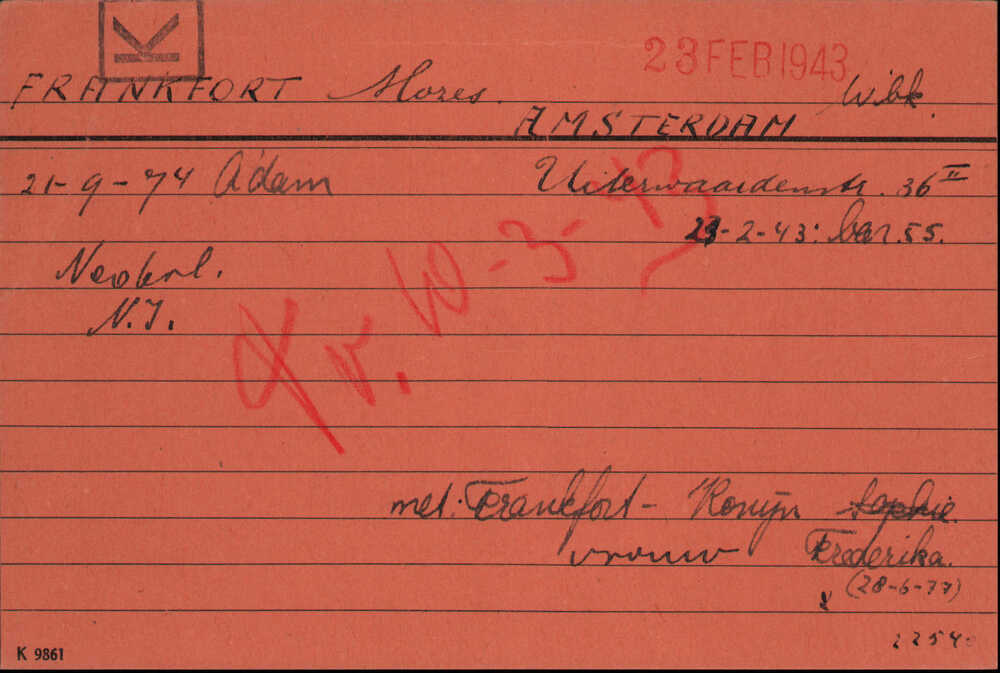 K
23 FEB 1943
FRANKFORT Mozes. Wibk.
AMSTERDAM
21-9-74 A'dam Uiterwaardenstr. 36 II
23-2-43: bar. 55.
Nederl.
N.I.
Tr. 10-3-43
met: Frankfort - Konijn Sophie.
vrouw Frederika.
(28-6-77)
K 9861